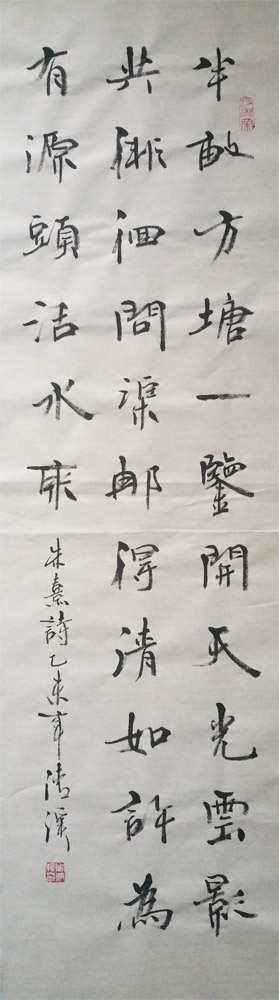 半畝方塘一鑒開天光雲影
共徘徊問渠那得清如許為
有源頭活水來
朱熹詩乙未年清溪